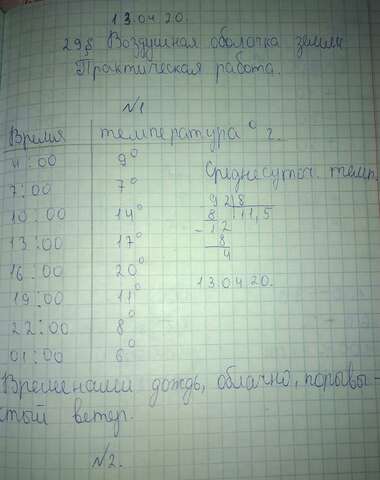 13.04.20.
29§ Воздушная оболочка земли
Практическая работа.
№1
Время температура° г.
4:00 9°
Среднесуточ. темп.
7:00 7°
92 8
10:00 14°
8 11,5
-12
13:00 17°
8
4
16:00 20°
13.04.20.
19:00 11°
22:00 8°
01:00 6°
Временами дождь, облачно, порывы-
стый ветер.
№2.